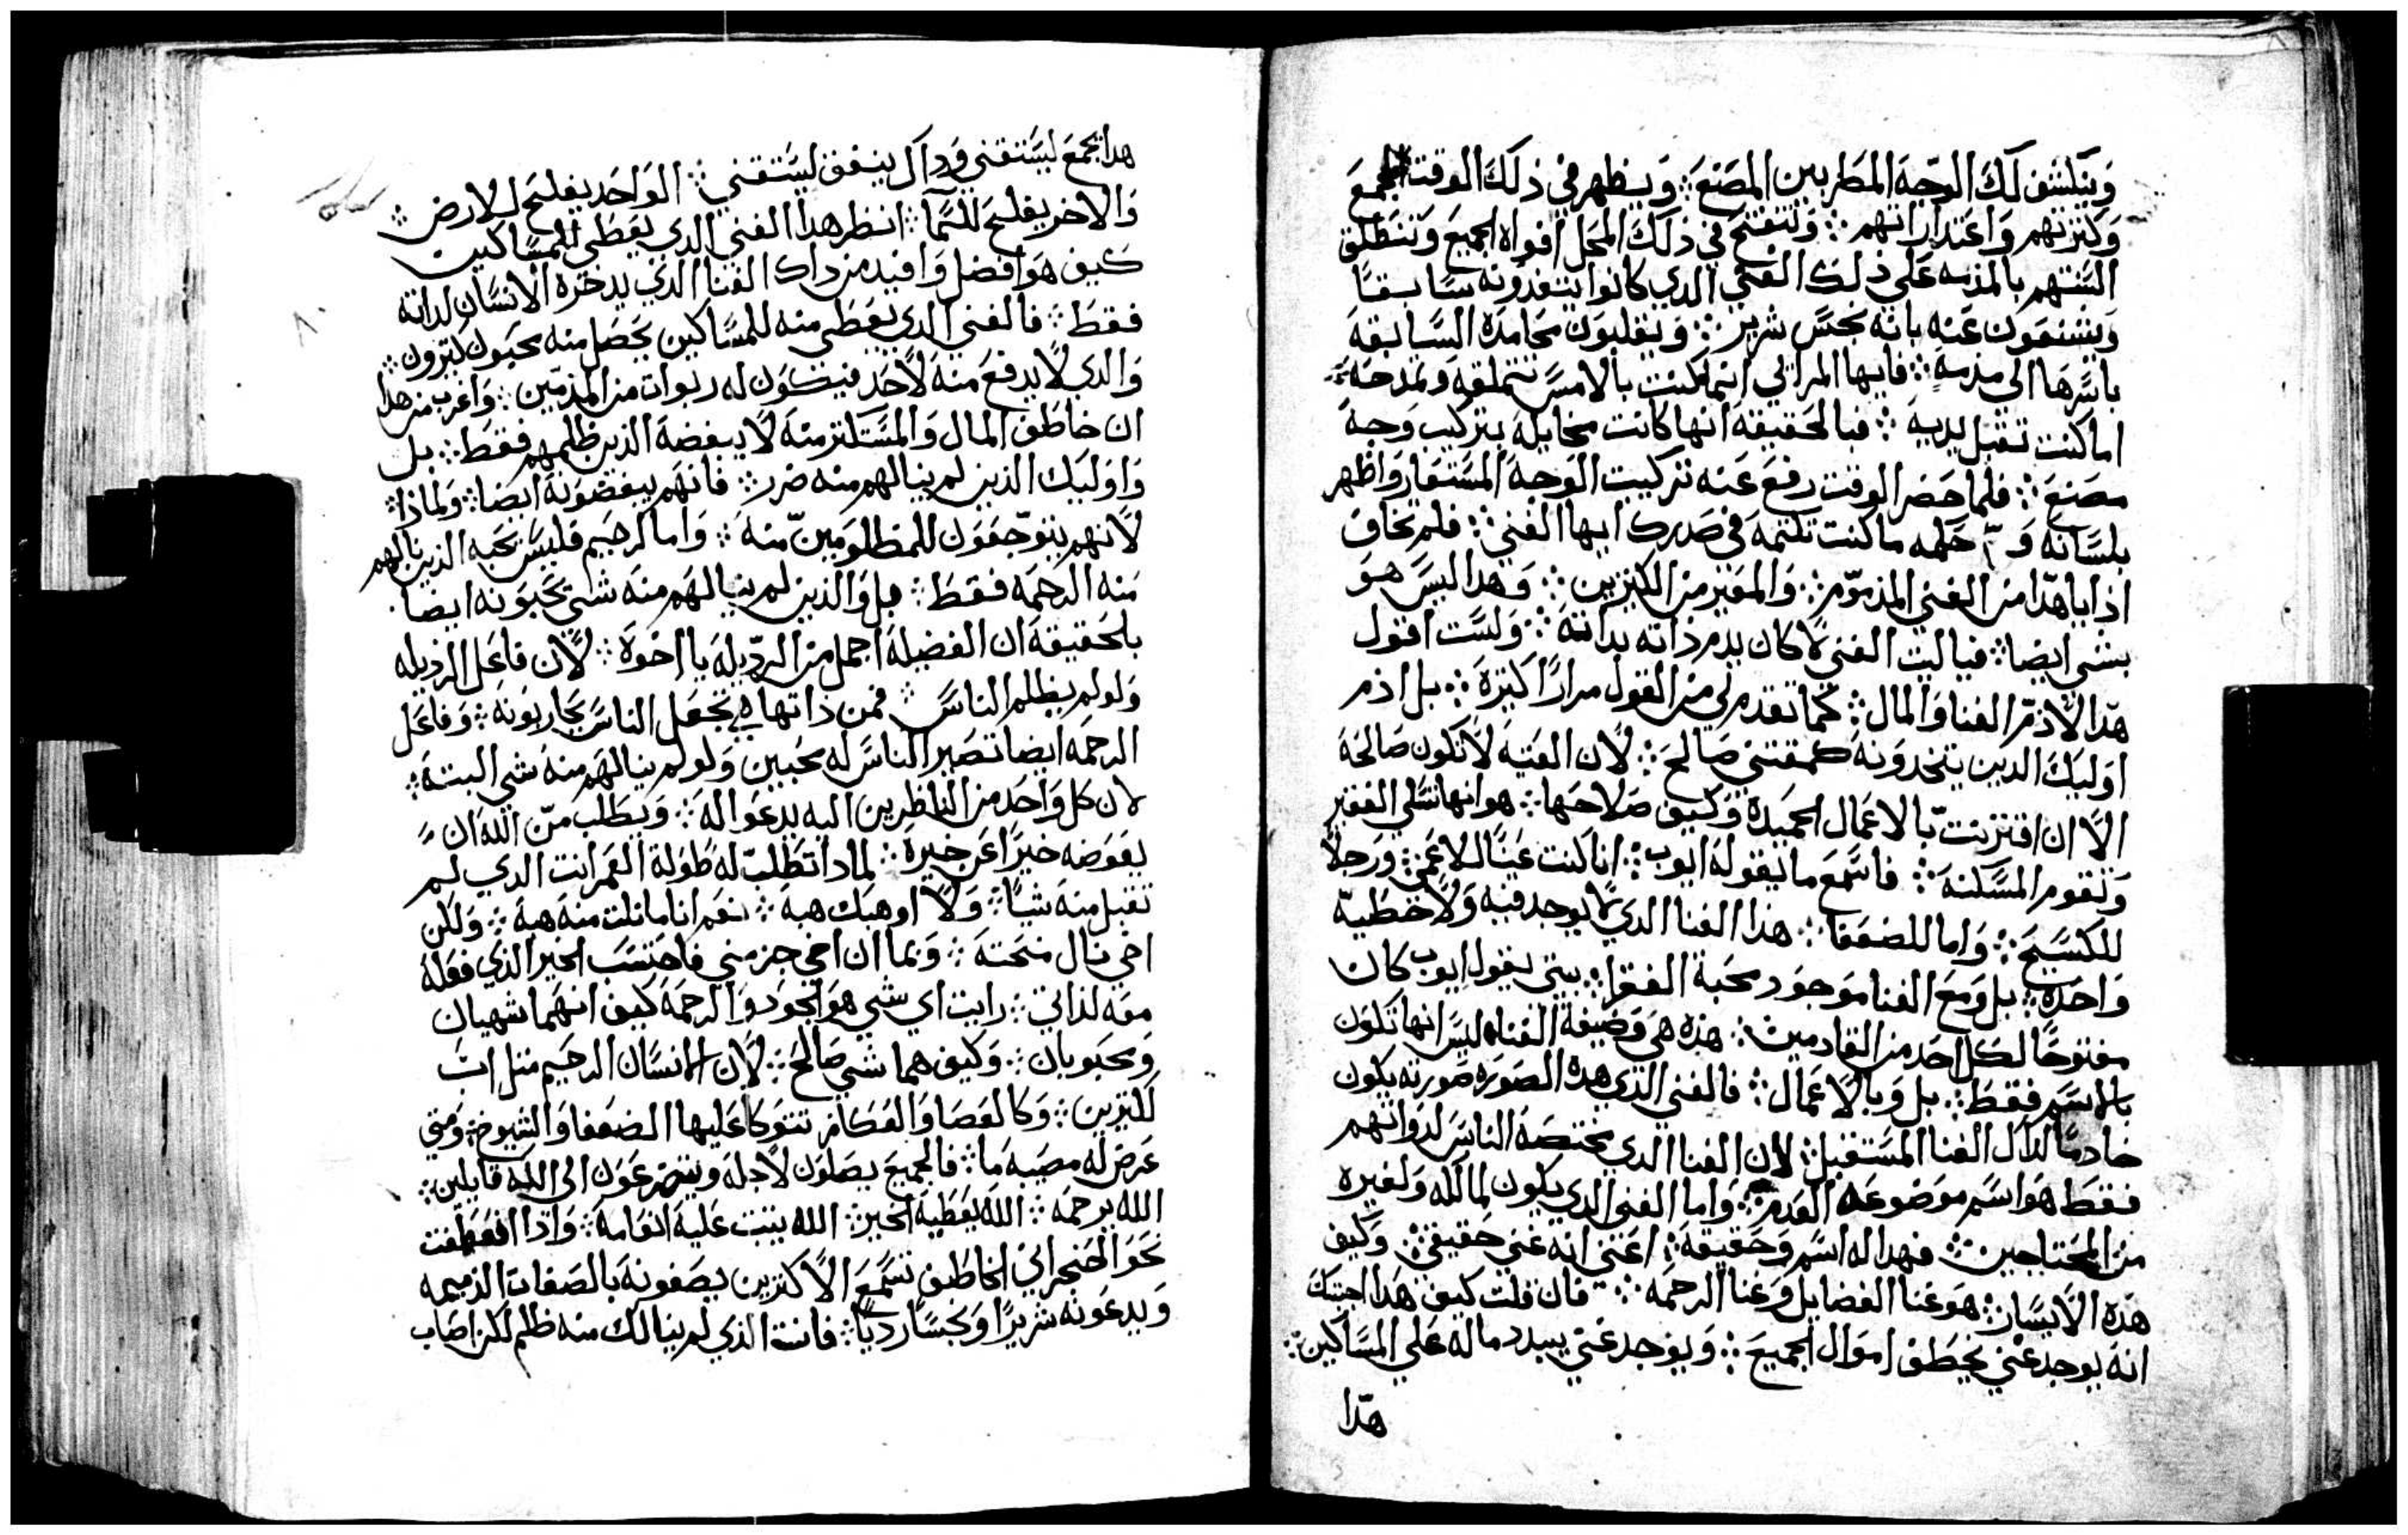 وينكشف لك الوجه المطربين المصنع ⁘ ويظهر في ذلك الوقت الجمع
وكثرتهم واعتداراتهم ⁘ وتنفتح في ذلك المحل افواه الجميع وتنطلق
السنتهم بالمذمه على ذلك الغني الذي كانوا يتعدونه سابقا
ويشنعون عنه بانه نجس شرير ⁘ ويقلبون محامده السابقة
باسرها الى مذمة ⁘ فايها المرائي انما كنت بالامس تتملقه وتمدحه
اما كنت تقبل يديه ⁘ فبالحقيقه انها كانت مخايله بتركيب وجه
مصنع ⁘ فلما حضر الوقت رفع عنه تركيب الوجه المستعار واظهر
بلسانه ما كنت تكتمه في صدرك ايها الغني ⁘ فلم تخاف
اذا ياهذا من الغني المذموم ⁘ والمعير من الكثيرين ⁘ وهدا ليس هو
بشي ايضا ⁘ فياليت الغني لا كان يدم ذاته بداته ⁘ ولست اقول
هدا لاذم الغنا والمال ⁘ كما تقدم لي من القول مرارا كثيرة ⁘ بل اذم
اوليك الدين يتخدونه كمقتني صالح ⁘ لان القنيه لا تكون صالحة
الا ان اقتزنت بالاعمال الحميدة وكيف صلاحها ⁘ هو انها تسلي الفقير
وتقوم المسكنه ⁘ فاسمع ما يقوله ايوب ⁘ انا كنت عينا للاعمي ⁘ ورجلا
للكسيح ⁘ واما للضعفا ⁘ هذا الغنا الدي لا يوجد فيه ولا خطية
واحدة ⁘ بل ومع الغنا موجود محبة الفقرا ⁘ بيتي يقول ايوب كان
مفتوحا لكل احد من القادمين ⁘ هذه هي وضيفة الغنا ليس انها تكون
بالاسم فقط ⁘ بل وبالاعمال ⁘ فالغني الذي هده الصوره صورته يكون
خادما لداك الغنا المستقبل ⁘ لان الغنا الدي تختصه الناس لدواتهم
فقط هو اسم موضوعه العدم ⁘ واما الغني الدي يكون لمالكه ولغيره
من المحتاجين ⁘ فهدا له اسم وحقيقة ⁘ اعني انه غني حقيقي ⁘ وكيف
هذه الانسان ⁘ هو غنا الفضايل وغنا الرحمه ⁘ فان قلت كيف هذا اجبتك
انه يوجد غني يخطف اموال الجميع ⁘ ويوجد غني يبدد ماله على المساكين ⁘
هدا
هدا يجمع ليستغني وداك ينفق ليستغني ⁘ الواحد يفلح الارض ⁘
والاخر يفلح السما ⁘ انظر هدا الغني الدي يعطى للمساكين
كيف هو افضل وافيد من داك الغنا الدي يدخره الانسان لداته
فقط ⁘ فالغني الدي يعطي منه للمساكين يحصل منه محبون كثرون ⁘
والدي لا يدفع منه لاحد فيكون له ربوات من المذمين ⁘ واغرب من هدا
ان خاطف المال والمستكتر منه لا يبغضه الذين ظلمهم فقط ⁘ بل
واوليك الذين لم ينالهم منه ضرر ⁘ فانهم يبغضونه ايضا ⁘ ولماذا ⁘
لانهم يتوجعون للمظلومين منه ⁘ واما الرحيم فليس تحبه الذين نالهم
منه الرحمه فقط ⁘ بل والذين لم ينالهم منه شي يحبونه ايضا
بالحقيقة ان الفضيلة اجمل من الرديله يا اخوة ⁘ لان فاعل الرديله
ولو لم يظلم الناس ⁘ فمن ذاتها هي تجعل الناس يحاربونه ⁘ وفاعل
الرحمه ايضا تصير الناس له محبين ولو لم ينالهم منه شي البتة ⁘
لان كل واحد من الناظرين اليه يدعوا له ⁘ ويطلب من الله ان
يعوضه خيرا عن خيره ⁘ لمادا تطلب له طولة العمر انت الدي لم
تقبل منه شيا ⁘ ولا اوهبك هبة ⁘ نعم انا ما نلت منه هبة ⁘ ولكن
اخي نال منحته ⁘ وبما ان اخي جز مني فاحتسب الخير الذي فعله
معه لذاتي ⁘ رايت اي شي هو الجود والرحمه كيف انهما شهيان
ومحبوبان ⁘ وكيف هما شي صالح ⁘ لان الانسان الرحيم مثل اب
لكثيرين ⁘ وكالعصا والعكاز تتوكا عليها الضعفا والشيوخ ⁘ ومتي
عرض له مصيبه ما ⁘ فالجميع يصلون لاجله ويتضرعون الى الله قايلين ⁘
الله يرحمه ⁘ الله يعطيه الخير ⁘ الله يثبت عليه انعامه ⁘ وادا انعطفت
نحو الحنجراني الخاطف تسمع الاكثرين يصفونه بالصفات الذميمه
ويدعونه شريرا ونجسا رديا ⁘ فانت الذي لم ينالك منه ظلم لكن اصاب